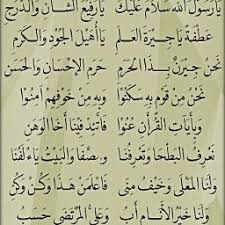 يَارَسُولَ اللهِ سَلَامٌ عَلَيْكَ يَارَفِيعَ الشَّانِ وَالدَّرَجِ
عَطْفَةً يَاجِيرَةَ العَلَمِ يَاأُهَيْلَ الجُودِ وَالكَرَمِ
نَحْنُ جِيرَانٌ بِذَا الحَرَمِ حَرَمِ الإِحْسَانِ وَالحَسَنِ
نَحْنُ مِنْ قَوْمٍ بِهِ سَكَنُوا وَبِهِ مِنْ خَوْفِهِمْ اَمِنُوا
وَبِأَيَاتِ القُرْآنِ عُنُوا فَاتَّئِدْ فِينَا أَخَا الوَهَنِ
نَعْرِفُ البَطْحَا وَتَعْرِفُنَا وَالصَّفَا وَالبَيْتُ يَاءْلَفُنَا
وَلَنَا المَعْلَى وَخَيْفُ مِنَى فَاعْلَمَنْ هَذَا وَكُنْ وَكُنِ
وَلَنَا خَيْرُ الأَنَامِ أَبُ وَعَلِيُّ المُرْتَضَى حَسَبُ